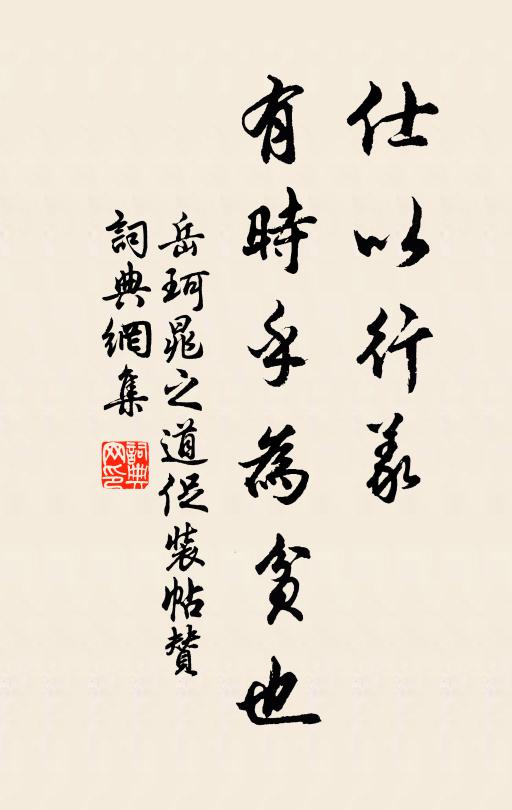 仕以行義
有時乎為貧也
岳珂晁之道促裝帖贊
詞典網集
詞典網印